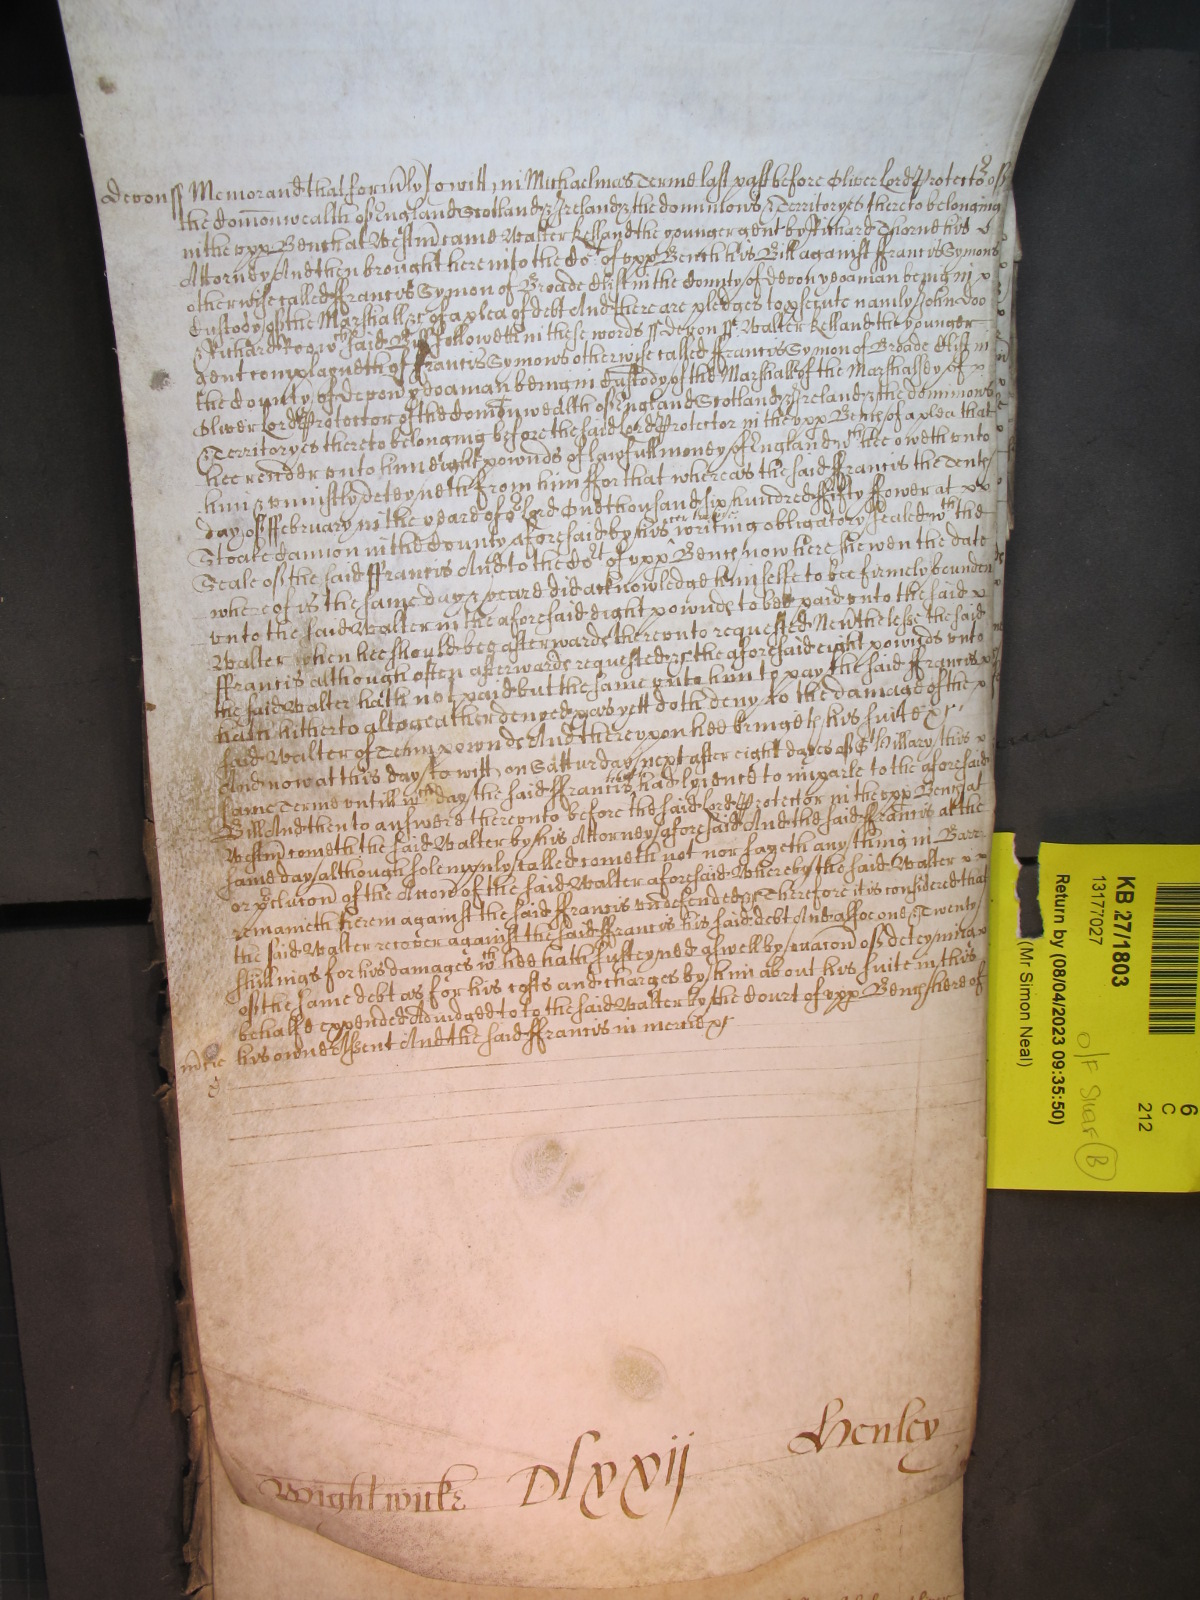 devonss Memorand that formerly to witt in Michaelmas Terme last past before Oliver Lord Protector of
the Comonwealth of England Scotland & Ireland & the dominions & Territoryes thereto belonging
in the upp Bench at Westm came Walter Kelland the younger gent by Richard Thorne his
Attorney And then brought here into the Cot of upp Bench his Bill against ffrancis Symons
otherwise called ffrancis Symon of Broade Clist in the County of Devon yeoman being in
Custody of the Marshall &c of a plea of debt And there are pledges to psecute namely John Doo
& Richard Roo wch said Bill followeth in these words ss Devon ss Walter Kelland the younger
Gent complayneth of ffrancis Symons otherwise called ffrancis Symon of Broade Clist in
the County of Devon yeoman being in Custody of the Marshall of the Marshalsey of
Oliver Lord Protector of the Comonwealth of England Scotland & Ireland & the dominions
& Territoryes thereto belonging before the said Lord Protector in the upp Bench of a plea that
hee render unto him eight pownds of lawfull money of England wch hee oweth unto
him & uniustly deteyneth from him ffor that whereas the said ffrancis the Tenth
day of ffebruary in the yeare of or Lord One thousand six hundred ffifty ffower at
Stoake Cannon in the County aforesaid by his writing obligatory sealed wth the
Seale of the said ffrancis And to the Cot of upp Bench now here shewen the date
whereof is the same day & yeare did acknowledge himselfe to bee firmely bounden
unto the said Walter in the aforesaid eight pownds to bee paid unto the said
Walter when hee should bee afterwards thereunto requested Neverthelesse the said
ffrancis although often afterwards requested &c the aforesaid eight pownds unto
the said Walter hath not paid but the same unto him to pay the said ffrancis
hath hitherto altogeather denyed & as yett doth deny to the damage of the
said Walter of Tenn pownds And thereupon hee bringeth his suite &c
And now at this day to witt on Satturday next after eight dayes of St Hillary this
same Terme untill wch day the said ffrancis had lycence to imparle to the aforesaid
Bill And then to answere thereunto before the said Lord Protector in the upp Bench at
Westm cometh the said Walter by his Attorney aforesaid And the said ffrancis at the
same day although solemnly called cometh not nor sayeth any thing in Barr
or pclusion of the Accon of the said Walter aforesaid Whereby the said Walter
remaineth therein against the said ffrancis undefended &c Therefore it is considered that
the said Walter recover against the said ffrancis his said debt And alsoe one & Twenty
shillings for his damages wch hee hath susteyned aswell by reason of deteyning
of the same debt as for his costs and charges by him about his suite in this
behalfe expended Adiudged to to the said Walter by the Court of upp Bench here of
his owne Assent And the said ffrancis in mercie &c
mcie
Wightwicke Dlxxij Henley
KB 27/1803
13177027
Return by (08/04/2023 09:35:50)
(Mr Simon Neal)
6
C
212
O/F Star B